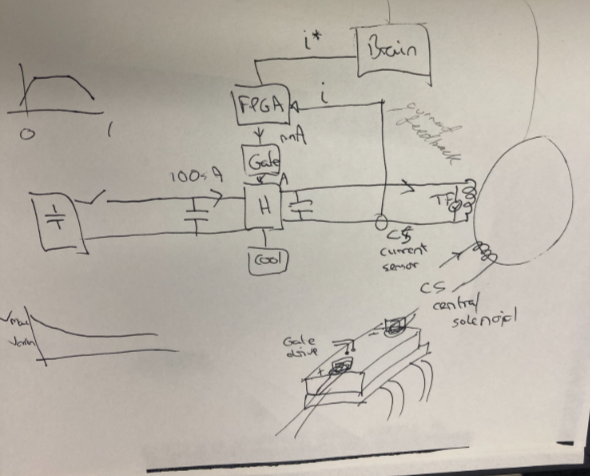 i*
Brain
FPGA
i
current
feedback
mA
Gate
100s A
A
H
TF
Cool
CS
current
sensor
CS
central
solenoid
0
1
Vmax
Vmin
Gate
drive
+
-